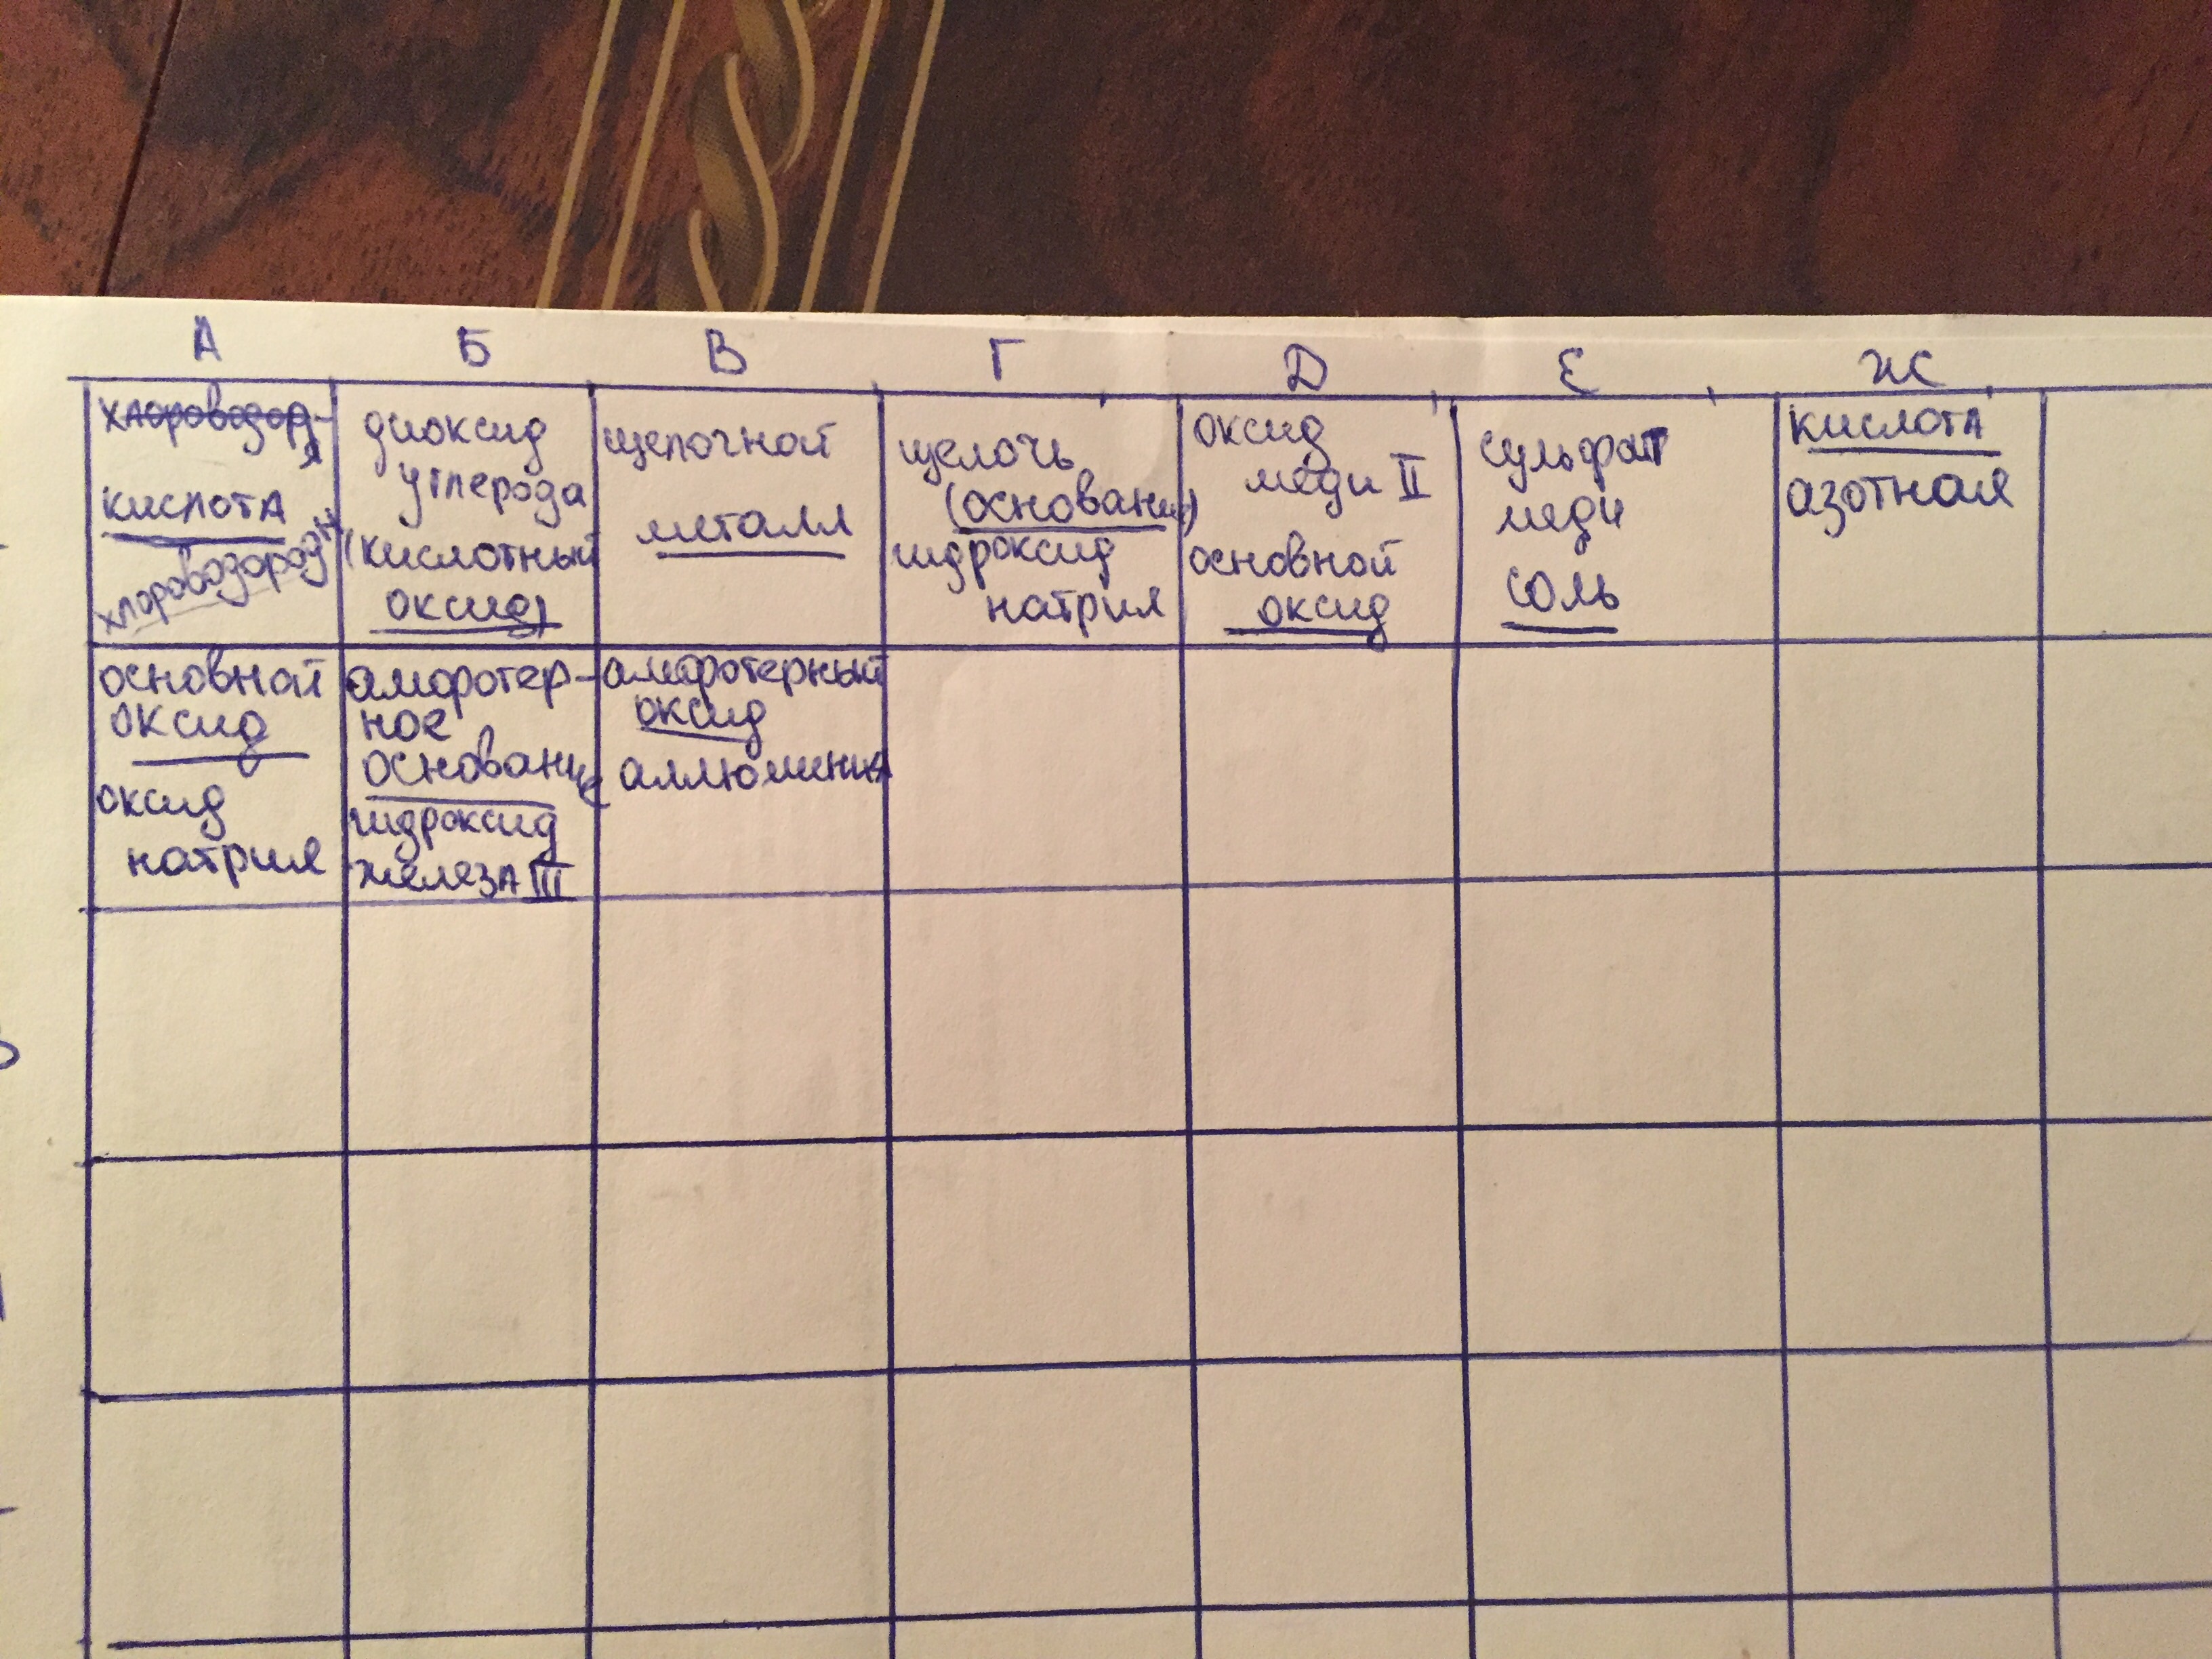 А Б В Г Д Е Ж
хлороводор-
я
кислота
хлороводородн
диоксид
углерода
(кислотный
оксид)
щелочной
металл
щелочь
(основание)
гидроксид
натрия
оксид
меди II
основной
оксид
сульфат
меди
соль
кислота
азотная
основной
оксид
оксид
натрия
амфотер-
ное
основание
гидроксид
железа III
амфотерный
оксид
аллюминия